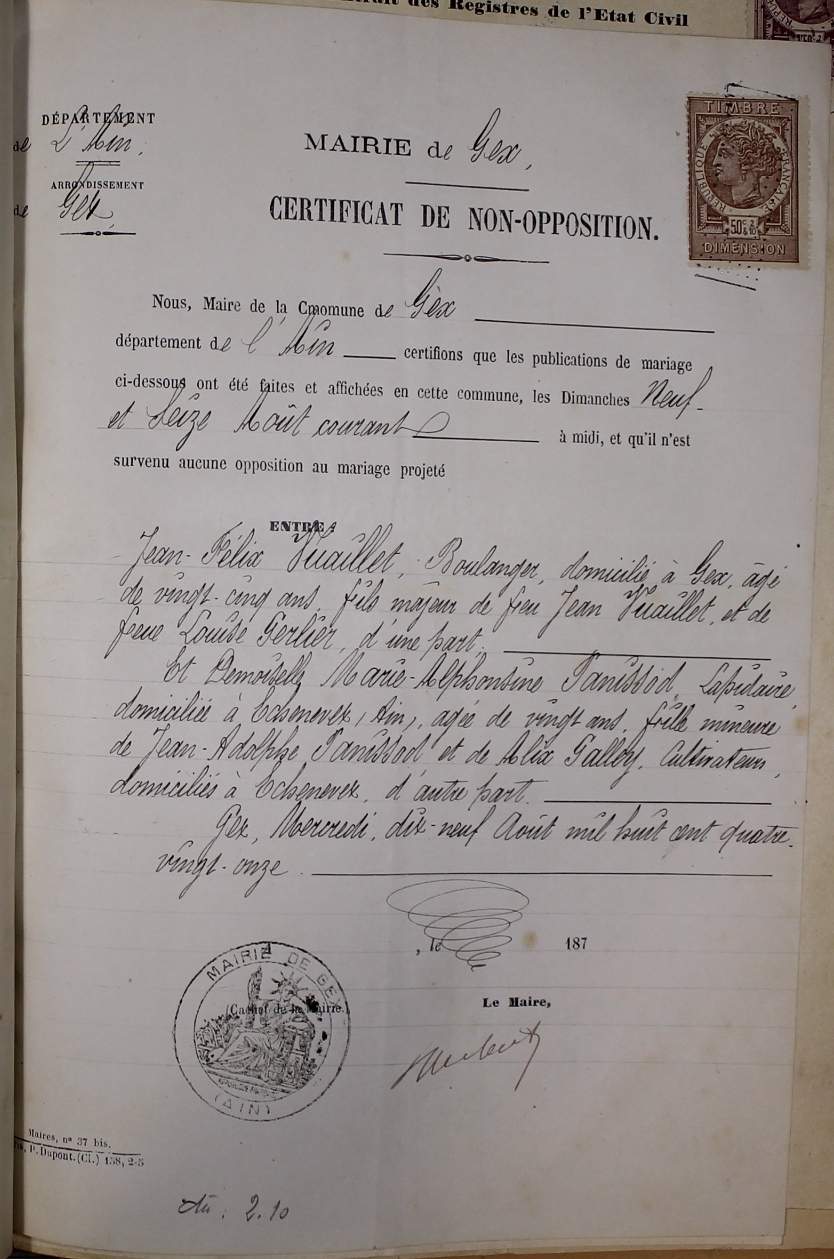 trait des Registres de l'Etat Civil
DÉPARTEMENT
de L'Ain.
ARRONDISSEMENT
de Gex
MAIRIE de Gex,
CERTIFICAT DE NON-OPPOSITION.
TIMBRE
RÉPUBLIQUE FRANÇAISE
50c
DIMENSION
Nous, Maire de la Cmomune de Gex
département de l'Ain certifions que les publications de mariage
ci-dessous ont été faites et affichées en cette commune, les Dimanches Neuf
et Seize Août courant à midi, et qu'il n'est
survenu aucune opposition au mariage projeté
ENTRE :
Jean-Félix Vuaillet, Boulanger, domicilié à Gex, âgé
de vingt-cinq ans, fils majeur de feu Jean Vuaillet, et de
feue Louise Gerlier, d'une part,
Et Demoiselle Marie-Alphonsine Panissod, Lapidaire,
domiciliée à Echenevex, (Ain), agée de vingt ans, fille mineure
de Jean-Adolphe Panissod et de Alix Galley, Cultivateurs,
domiciliés à Echenevex, d'autre part.
Gex, Mercredi, dix-neuf Août mil huit cent quatre-
vingt-onze.
, le 187
MAIRIE DE GEX
(Cachet de la Mairie.)
(AIN)
Le Maire,
Maires, n° 37 bis.
P. Dupont. (Cl.) 158, 2-5
2.10